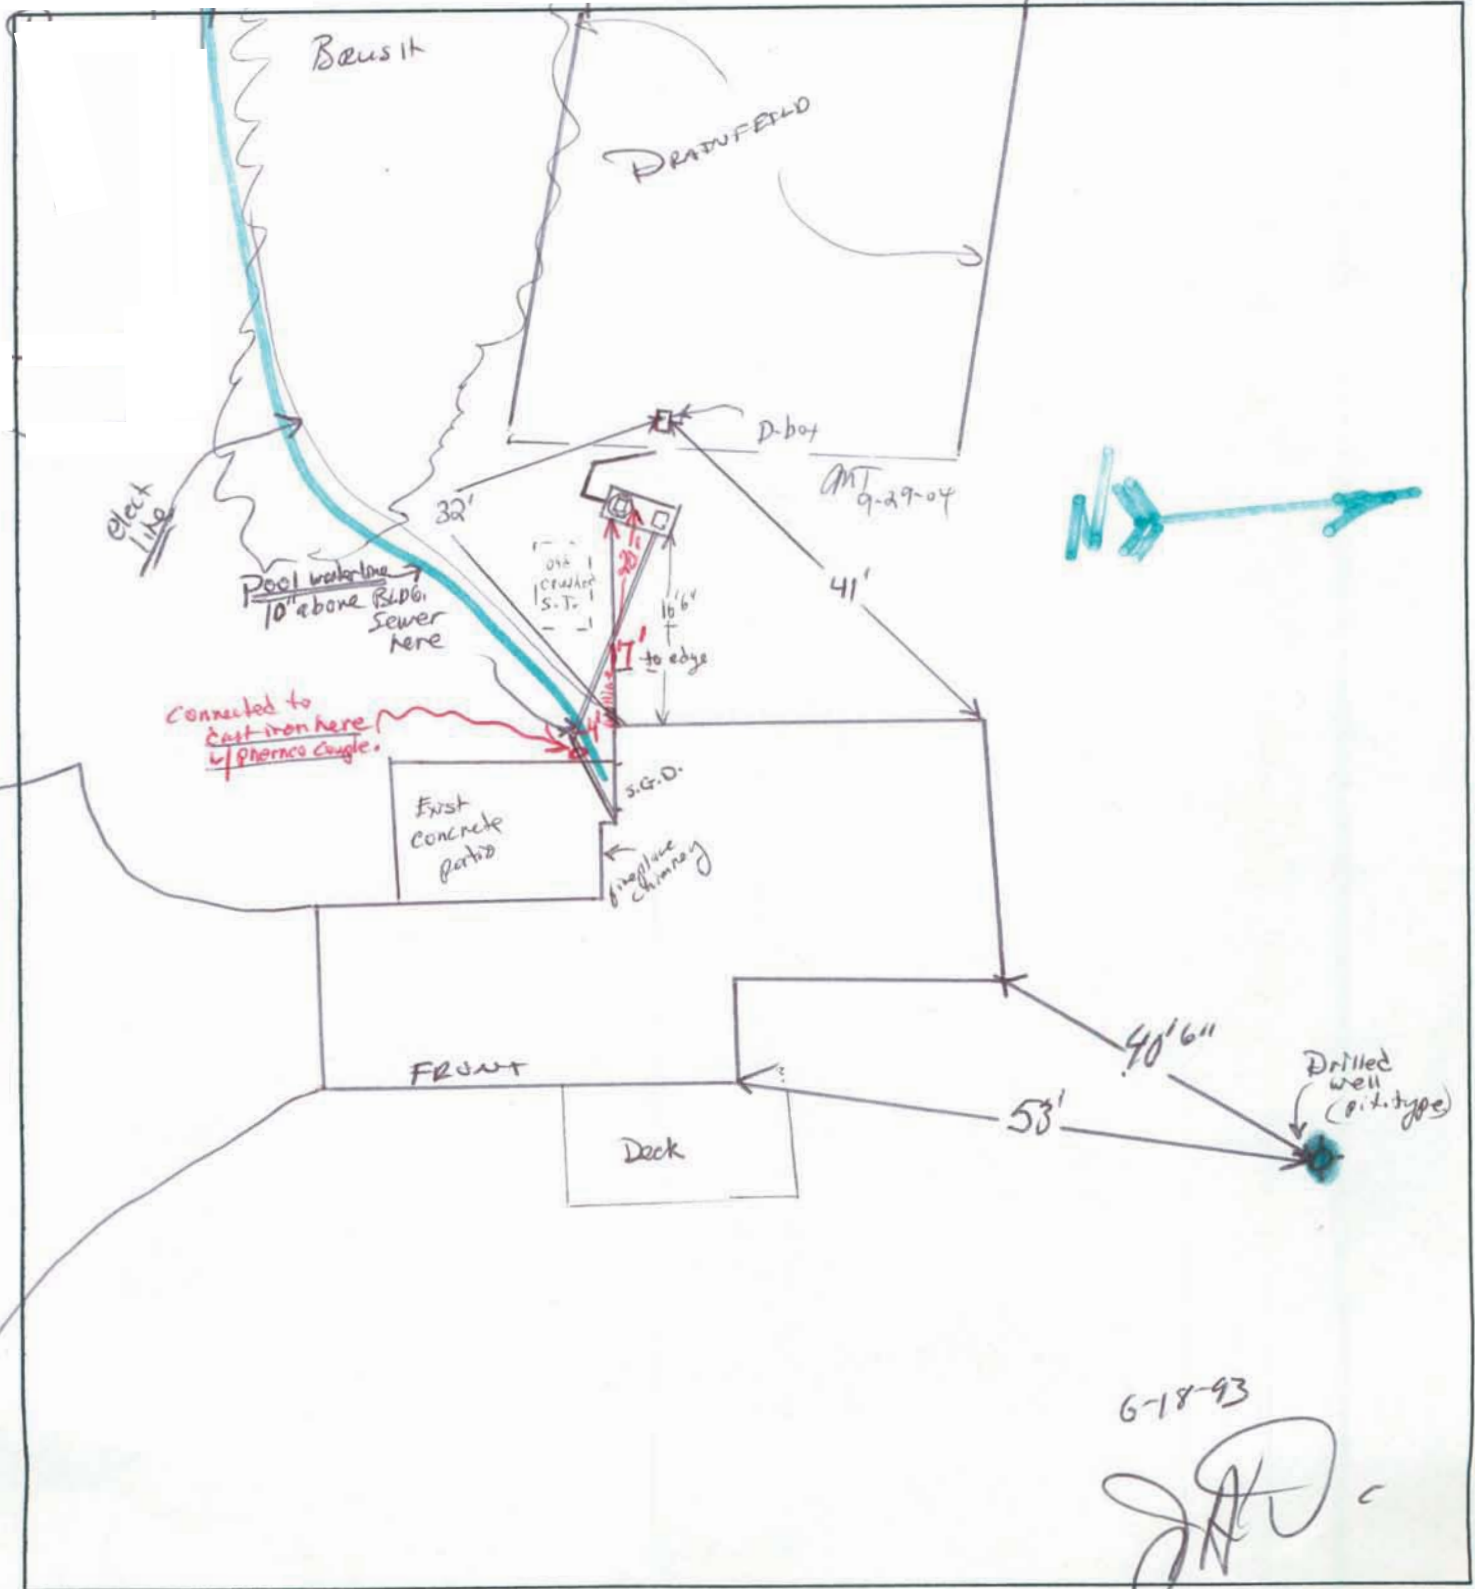 Brush
DRAINFEILD
D-box
9-29-04
N
32'
41'
elect
line
Pool waterline
10" above BLDG.
Sewer
here
old
crushed
S.T.
20'
16'6"
17'
to edge
4'
Connected to
cast iron here
w/
S.G.D.
Exist
concrete
patio
fireplace
chimney
FRONT
Deck
40'6"
53'
Drilled
well
(pit-type)
6-18-93